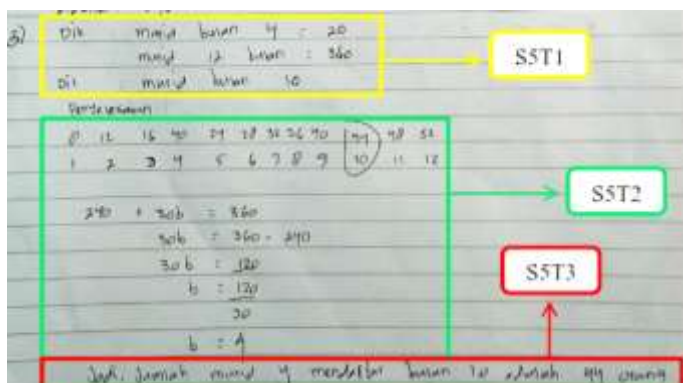 3) Dik murid bulan 4 : 20
murid 12 bulan : 360
Dit murid bulan 10
Penyelesaian
8 12 16 20 24 28 32 36 40 44 48 52
1 2 3 4 5 6 7 8 9 10 11 12
240 + 30b = 360
30b = 360 - 240
30b = 120
b = 120
30
b = 4
Jadi, Jumlah murid y mendaftar bulan 10 adalah 44 orang
S5T1
S5T2
S5T3